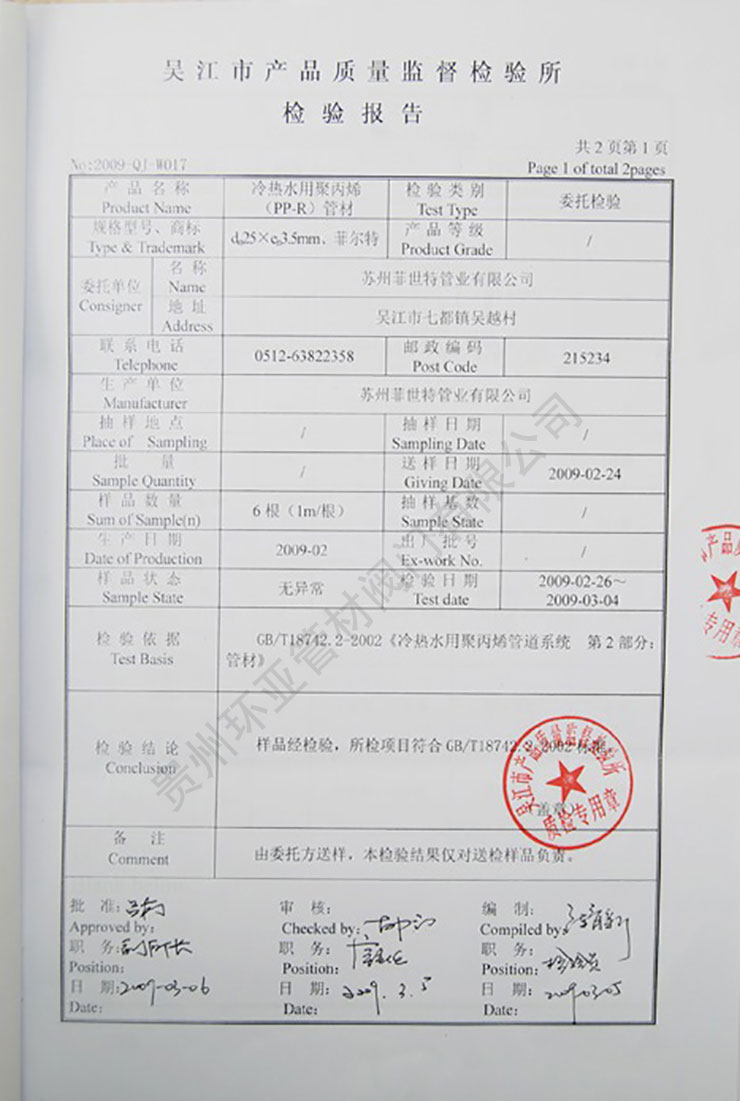 吴江市产品质量监督检验所
检验报告
共2页第1页
No:2009-QJ-W017
Page 1 of total 2pages
产品名称
Product Name
冷热水用聚丙烯
(PP-R)管材
检验类别
Test Type
委托检验
规格型号、商标
Type & Trademark
dn25×en3.5mm、菲尔特
产品等级
Product Grade
/
委托单位
Consigner
名称
Name
苏州菲世特管业有限公司
地址
Address
吴江市七都镇吴越村
联系电话
Telephone
0512-63822358
邮政编码
Post Code
215234
生产单位
Manufacturer
苏州菲世特管业有限公司
抽样地点
Place of Sampling
/
抽样日期
Sampling Date
/
批量
Sample Quantity
/
送样日期
Giving Date
2009-02-24
样品数量
Sum of Sample(n)
6根(1m/根)
抽样基数
Sample State
/
生产日期
Date of Production
2009-02
出厂批号
Ex-work No.
/
样品状态
Sample State
无异常
检验日期
Test date
2009-02-26~
2009-03-04
检验依据
Test Basis
GB/T18742.2-2002《冷热水用聚丙烯管道系统 第2部分:
管材》
检验结论
Conclusion
样品经检验,所检项目符合GB/T18742.2-2002标准。
(盖章)
吴江市产品质量监督检验所
质检专用章
产品质
专用章
备注
Comment
由委托方送样,本检验结果仅对送检样品负责。
批准:
Approved by:
职务:副所长
Position:
日期:2009-03-06
Date:
审核:
Checked by:
职务:
Position:
日期:2009.3.5
Date:
编制:
Compiled by:
职务:检验员
Position:
日期:2009.03.05
Date:
贵州环亚管材阀门有限公司